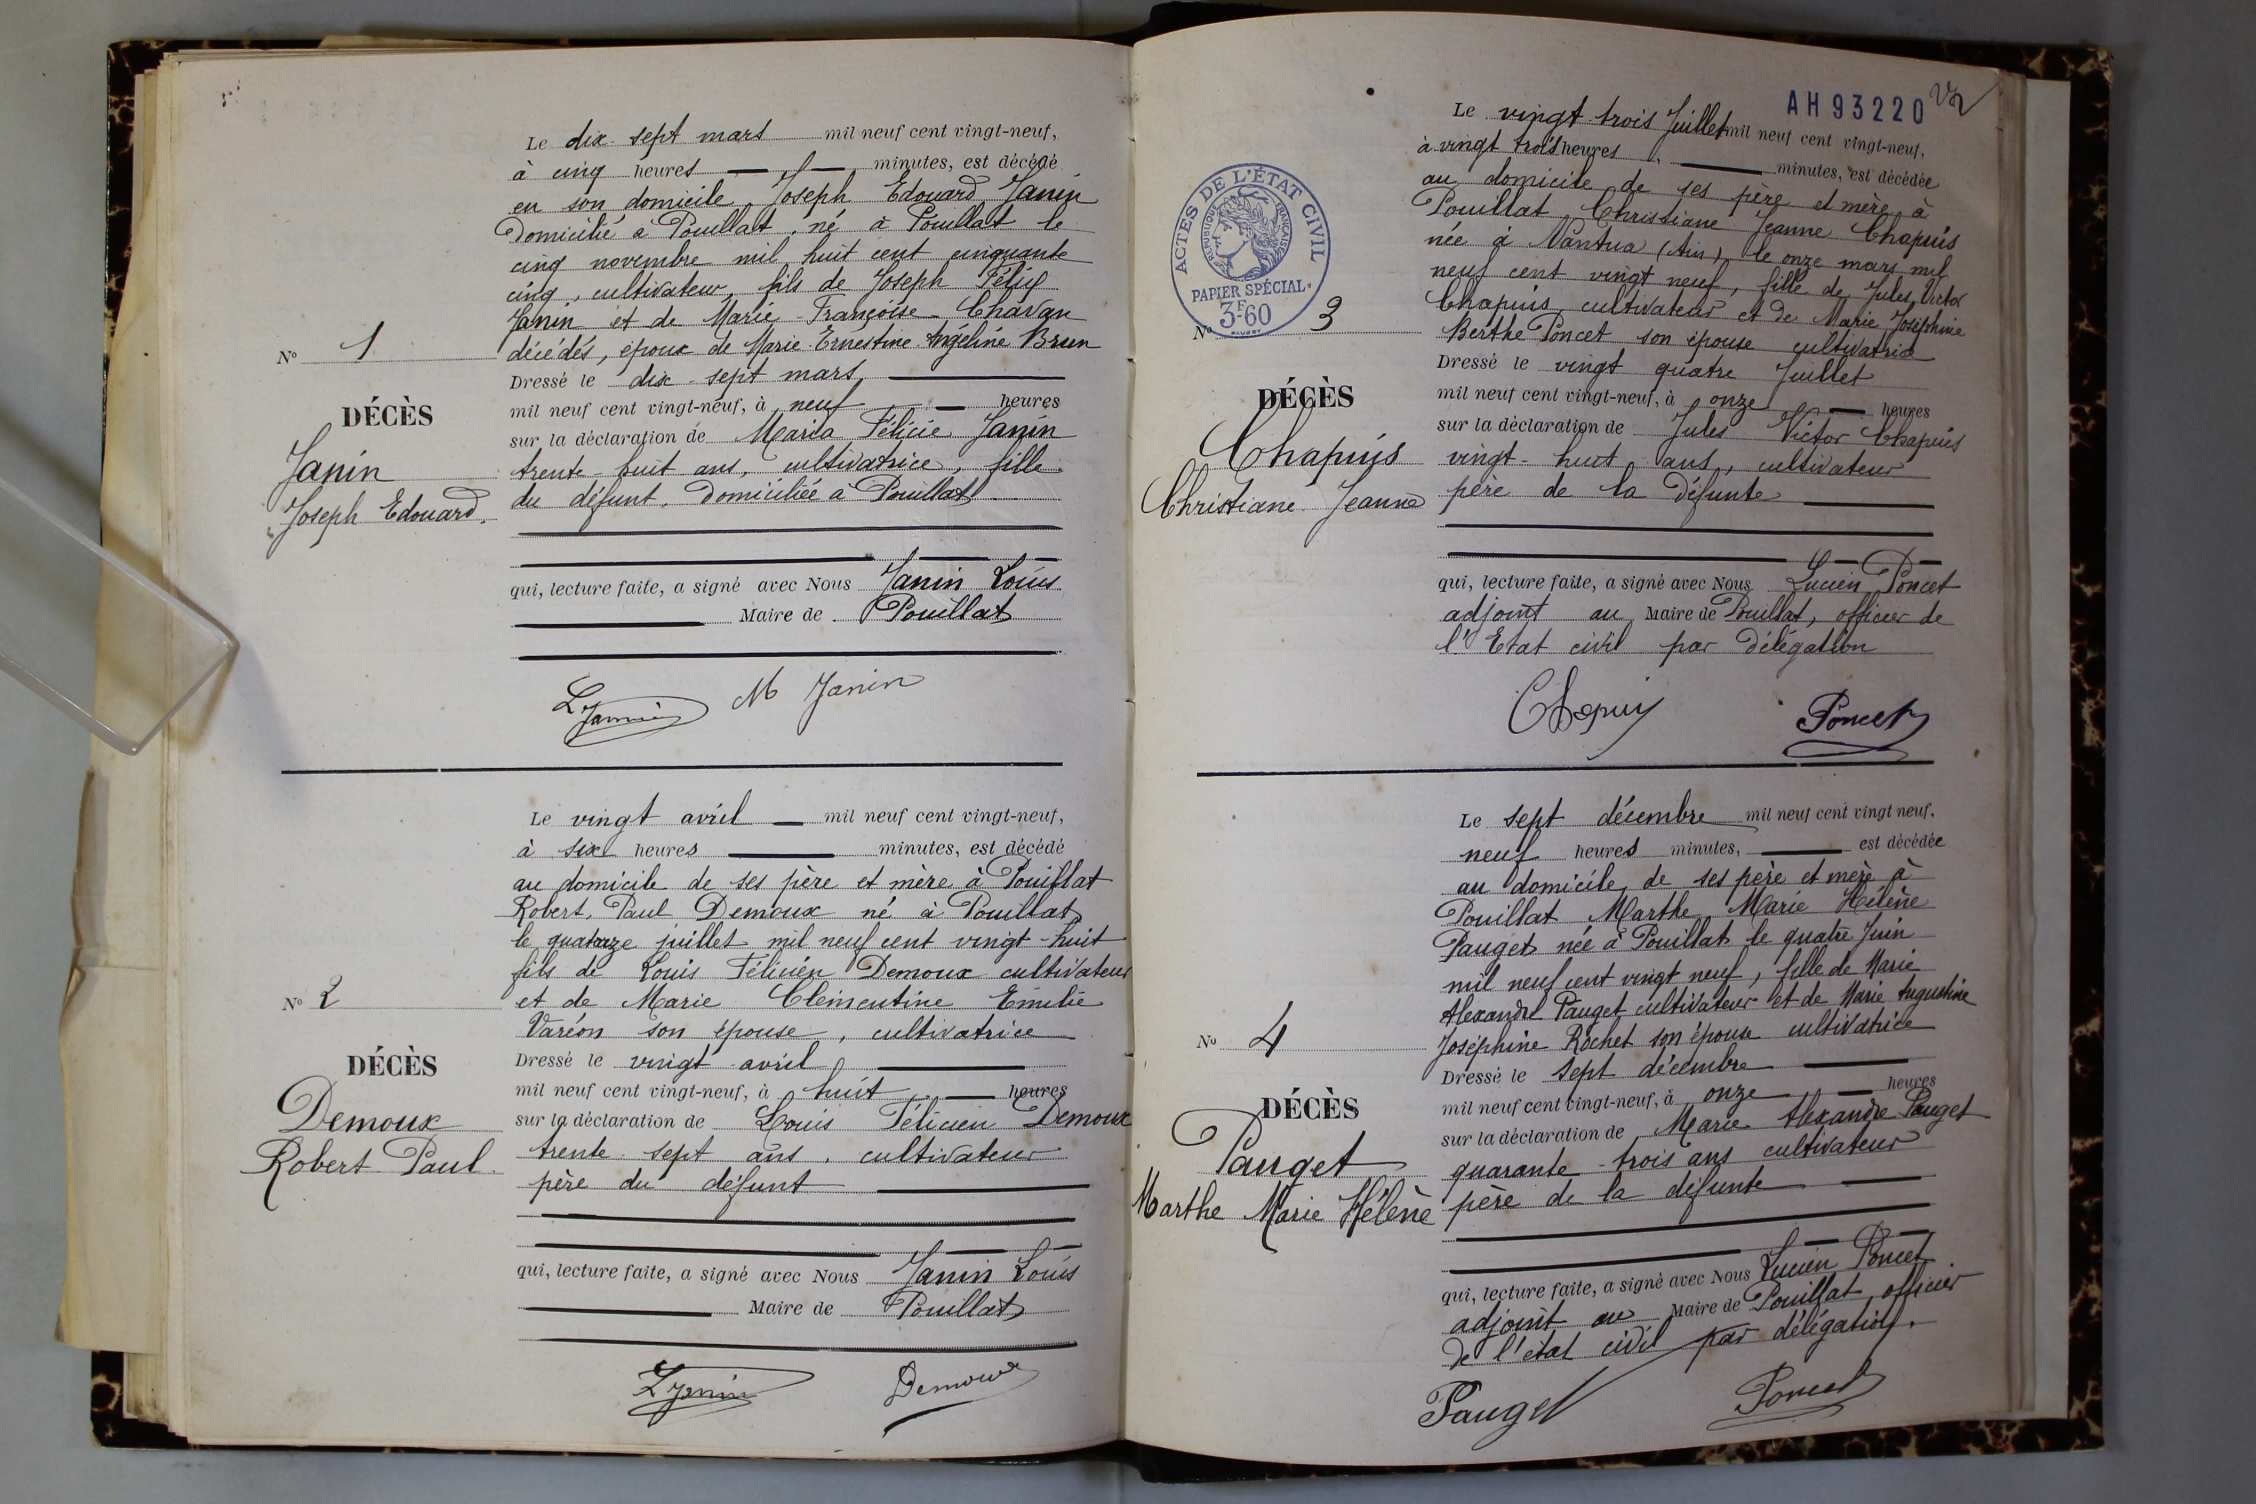 Le dix-sept mars mil neuf cent vingt-neuf,
à cinq heures minutes, est décédé
en son domicile Joseph Edouard Janin
domicilié à Pouillat, né à Pouillat le
cinq novembre mil huit cent cinquante
cinq, cultivateur, fils de Joseph Félix
Janin et de Marie-Françoise Chavan
décédés, époux de Marie-Ernestine Angéline Brun
Dressé le dix-sept mars
mil neuf cent vingt-neuf, à neuf heures
sur la déclaration de Maria Félicie Janin
trente-huit ans, cultivatrice, fille
du défunt, domiciliée à Pouillat
qui, lecture faite, a signé avec Nous Janin Louis
Maire de Pouillat
L Janin M Janin
N° 1
DÉCÈS
Janin
Joseph Edouard.
Le vingt avril mil neuf cent vingt-neuf,
à six heures minutes, est décédé
au domicile de ses père et mère à Pouillat
Robert, Paul Demoux né à Pouillat
le quatorze juillet mil neuf cent vingt-huit
fils de Louis Félicien Demoux cultivateur
et de Marie Clémentine Emilie
Varéon son épouse, cultivatrice
Dressé le vingt avril
mil neuf cent vingt-neuf, à huit heures
sur la déclaration de Louis Félicien Demoux
trente-sept ans, cultivateur
père du défunt
qui, lecture faite, a signé avec Nous Janin Louis
Maire de Pouillat
L Janin Demoux
N° 2
DÉCÈS
Demoux
Robert Paul.
AH93220
ACTES DE L'ÉTAT CIVIL
RÉPUBLIQUE FRANÇAISE
PAPIER SPÉCIAL
3F60
Le vingt-trois Juillet mil neuf cent vingt-neuf,
à vingt trois heures minutes, est décédée
au domicile de ses père et mère à
Pouillat Christiane Jeanne Chapuis
née à Nantua (Ain), le onze mars mil
neuf cent vingt neuf, fille de Jules Victor
Chapuis, cultivateur et de Marie Joséphine
Berthe Poncet son épouse cultivatrice
Dressé le vingt quatre Juillet
mil neuf cent vingt-neuf, à onze heures
sur la déclaration de Jules Victor Chapuis
vingt-huit ans, cultivateur
père de la défunte
qui, lecture faite, a signé avec Nous Lucien Poncet
adjoint au Maire de Pouillat, officier de
l'Etat civil par délégation
Chapuis Poncet
N° 3
DÉCÈS
Chapuis
Christiane Jeanne
Le sept décembre mil neuf cent vingt neuf,
neuf heures minutes, est décédée
au domicile de ses père et mère à
Pouillat Marthe Marie Hélène
Pauget née à Pouillat le quatre Juin
mil neuf cent vingt neuf, fille de Marie
Alexandre Pauget cultivateur et de Marie Augustine
Joséphine Rochet son épouse cultivatrice
Dressé le sept décembre
mil neuf cent vingt-neuf, à onze heures
sur la déclaration de Marie Alexandre Pauget
quarante-trois ans cultivateur
père de la défunte
qui, lecture faite, a signé avec Nous Lucien Poncet
adjoint au Maire de Pouillat, officier
de l'état civil par délégation.
Pauget Poncet
N° 4
DÉCÈS
Pauget
Marthe Marie Hélène